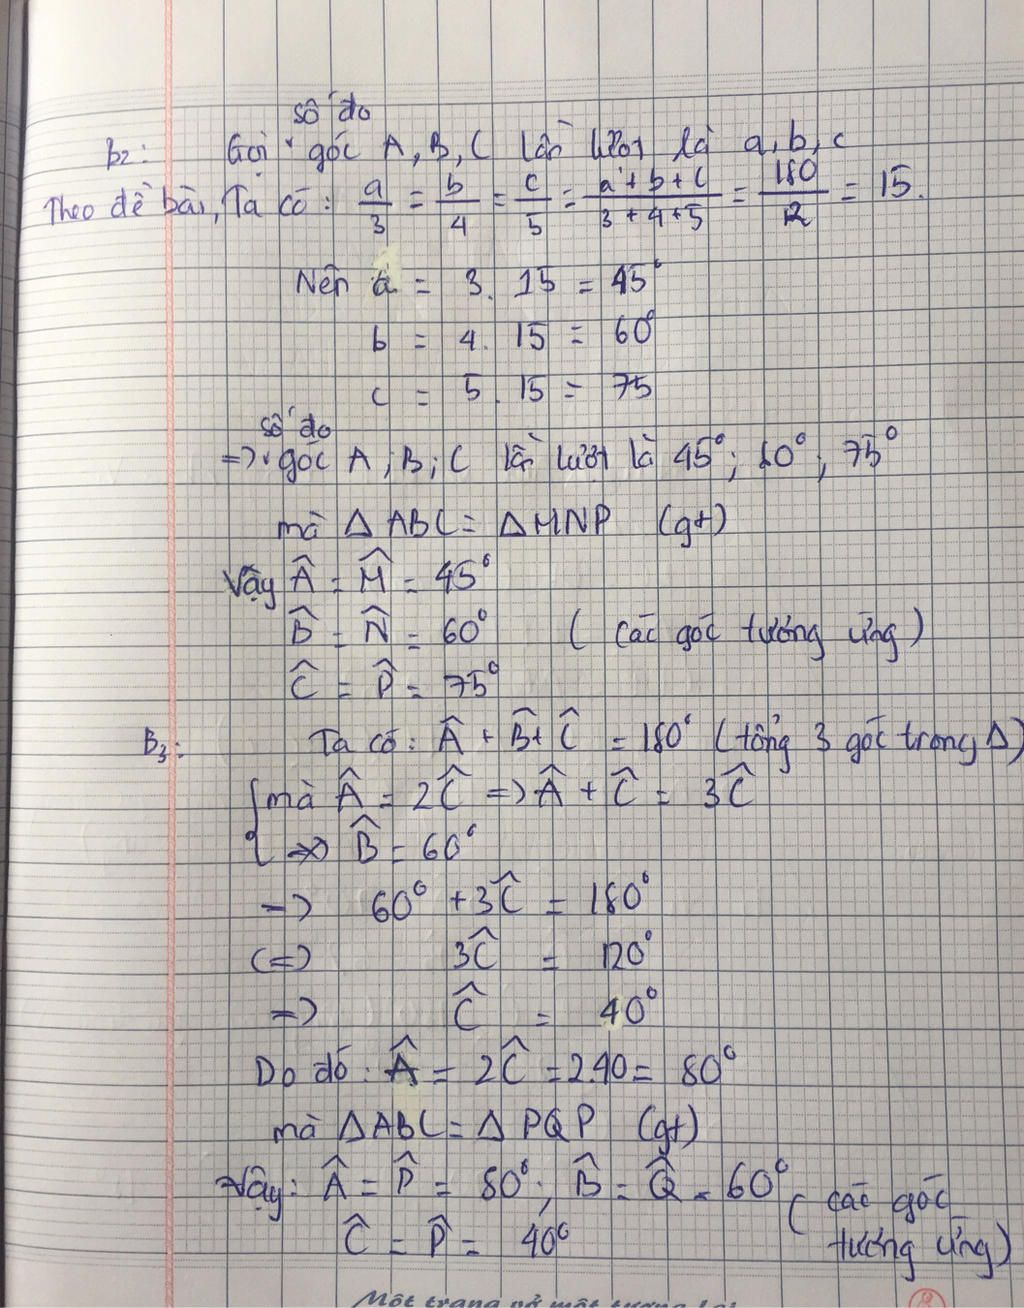 số đo
B2: Gọi góc A, B, C lần lượt là a, b, c
Theo đề bài, Ta có: a/3 = b/4 = c/5 = (a + b + c)/(3 + 4 + 5) = 180/12 = 15.
Nên a = 3. 15 = 45°
b = 4. 15 = 60°
c = 5. 15 = 75
số đo
=> góc A; B; C lần lượt là 45°; 60°; 75°
mà Δ ABC = Δ MNP (gt)
Vậy Â = M̂ = 45°
B̂ = N̂ = 60° (các góc tương ứng)
Ĉ = P̂ = 75°
B3: Ta có: Â + B̂ + Ĉ = 180° (tổng 3 góc trong Δ)
{ mà Â = 2Ĉ => Â + Ĉ = 3Ĉ
=> B̂ = 60°
=> 60° + 3Ĉ = 180°
<=> 3Ĉ = 120°
=> Ĉ = 40°
Do đó: Â = 2Ĉ = 2.40 = 80°
mà ΔABC = Δ PQP (gt)
Vậy: Â = P̂ = 80°; B̂ = Q̂ = 60° (các góc
Ĉ = P̂ = 40° tương ứng)
Một trang vở một tương lai